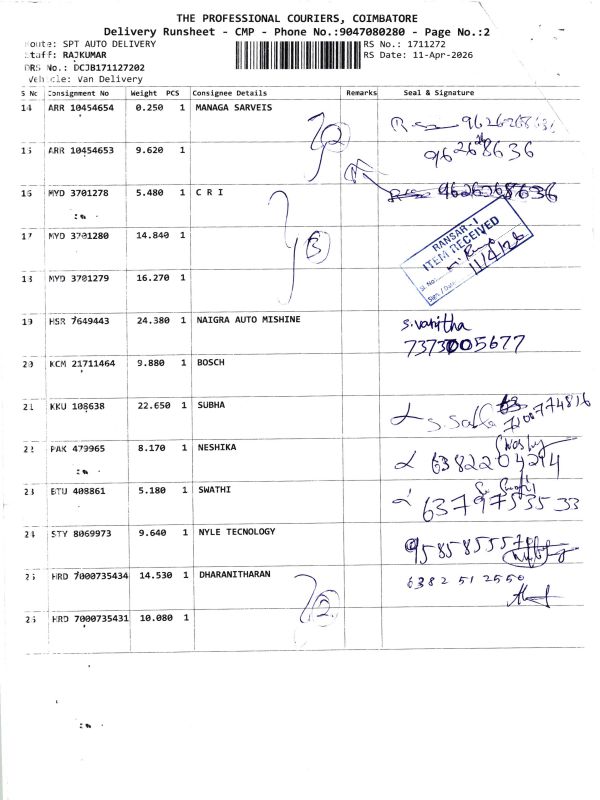 THE PROFESSIONAL COURIERS, COIMBATORE
Delivery Runsheet - CMP - Phone No.:9047080280 - Page No.:2
Route: SPT AUTO DELIVERY
Staff: RAJKUMAR
DRS No.: DCJB171127202
Vehicle: Van Delivery
RS No.: 1711272
RS Date: 11-Apr-2026
S No Consignment No Weight PCS Consignee Details Remarks Seal & Signature
14 ARR 10454654 0.250 1 MANAGA SARVEIS
2
15 ARR 10454653 9.620 1 9626268636
16 MYD 3701278 5.480 1 C R I 9626268636
17 MYD 3701280 14.840 1
3
RANSAR - I
ITEM RECEIVED
Sl. No:
Sign / Date
11/4/26
18 MYD 3701279 16.270 1
19 HSR 7649443 24.380 1 NAIGRA AUTO MISHINE S.vanitha
7373005677
20 KCM 21711464 9.880 1 BOSCH
21 KKU 108638 22.650 1 SUBHA
22 PAK 479965 8.170 1 NESHIKA 6382204214
23 BTU 408861 5.180 1 SWATHI 6379753533
24 STY 8069973 9.640 1 NYLE TECNOLOGY
25 HRD 7000735434 14.530 1 DHARANITHARAN 6382512550
2
26 HRD 7000735431 10.080 1